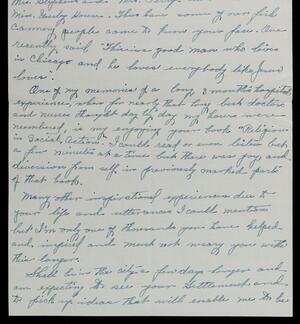 Mrs. Stephens and Mrs.
Miss Emily Howes. Then have some of your fish
Cannery peoples came to know your face. One
recently, said "There is a good man who lives
in Chicago and he loves everybody like Jesus
loves".
One of my memories of a long 3 months hospital
experience, when for nearly that long best doctors
and nurses thought day by day my hours were
numbered, is my enjoying your book "Religion
in Social Action". I could read or even listen but
a few minutes at a time but there was joy and
diversion from self in previously marked parts
of that book.
Many other inspirational experiences due to
your life and utterances I could mention
but I'm only one of thousands you have helped
and inspired and must not weary you with
this longer.
Shall be in the city a few days longer and
am expecting to see your Settlement and
to pick up ideas that will enable me to be